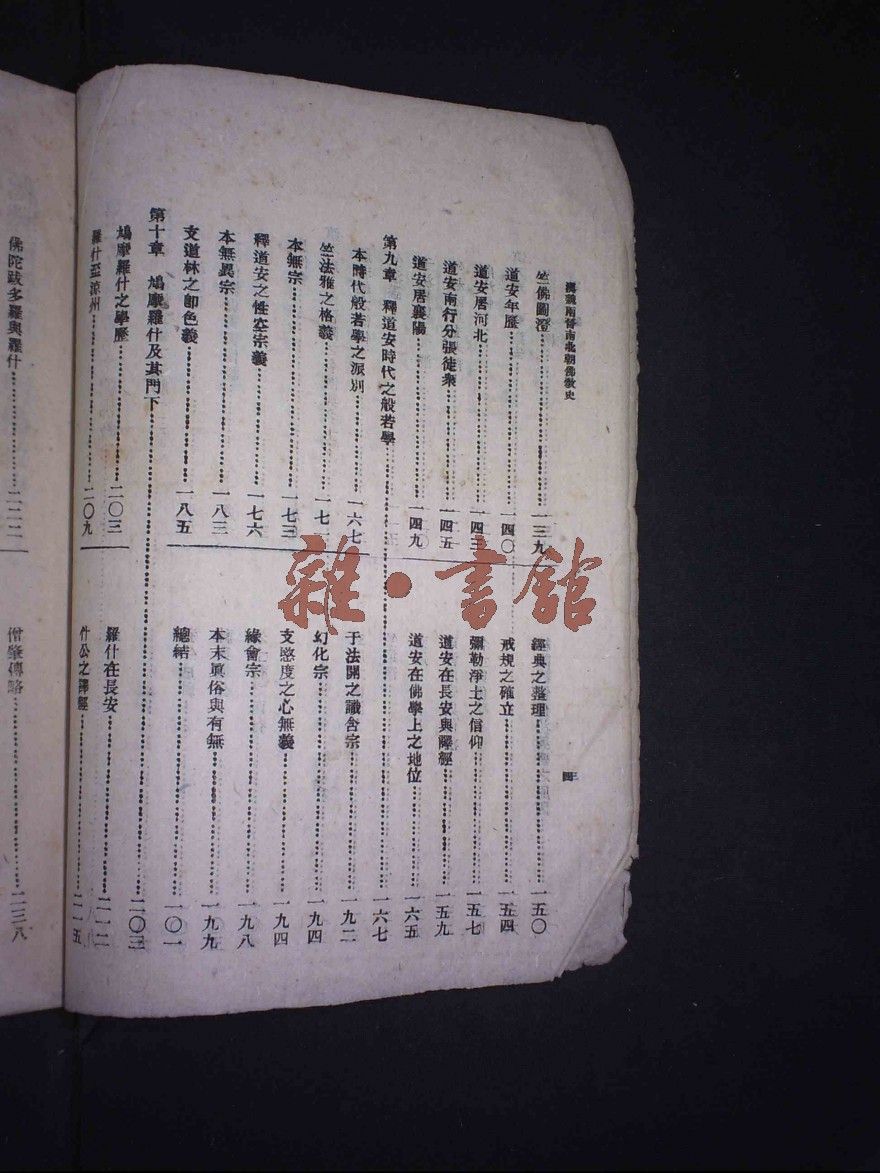 漢魏兩晉南北朝佛教史
四
竺佛圖澄……一三九
道安年歷……一四〇
道安居河北……一四三
道安南行分張徒衆……一四五
道安居襄陽……一四九
經典之整理……一五〇
戒規之確立……一五四
彌勒淨土之信仰……一五七
道安在長安與譯經……一五九
道安在佛學上之地位……一六五
第九章 釋道安時代之般若學……一六七
本時代般若學之派別……一六七
竺法雅之格義……一七二
本無宗……一七三
釋道安之性空宗義……一七六
本無異宗……一八三
支道林之卽色義……一八五
于法開之識含宗……一九二
幻化宗……一九四
支愍度之心無義……一九四
緣會宗……一九八
本末眞俗與有無……一九九
總結……二〇一
第十章 鳩摩羅什及其門下……二〇三
鳩摩羅什之學歷……二〇三
羅什至涼州……二〇九
羅什在長安……二一二
什公之譯經……二一五
佛陀跋多羅與羅什……二二二
僧肇傳略……二三八
雜·書館